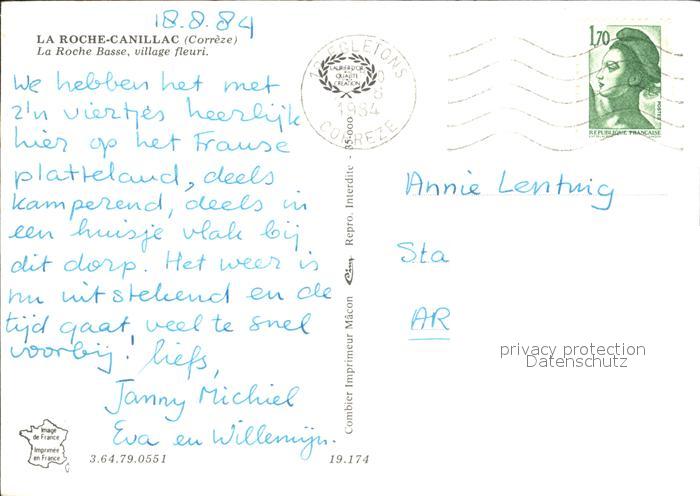 18.8.84
LA ROCHE-CANILLAC (Corrèze)
La Roche Basse, village fleuri.
We hebben het met
z'n viertjes heerlijk
hier op het Franse
platteland, deels
kamperend, deels in
een huisje vlak bij
dit dorp. Het weer is
nu uitstekend en de
tijd gaat veel te snel
voorbij! liefs,
Janny Michiel
Eva en Willemijn.
Image
de France
Imprimée
en France
3.64.79.0551
19.174
Combier Imprimeur Mâcon
Repro. Interdite - 35-000
LAURIER D'OR
QUALITÉ
CRÉATION
EGLETONS
1984
CORREZE
1,70
POSTES
REPUBLIQUE FRANÇAISE
Annie Lentwig
Sta
AR
privacy protection
Datenschutz